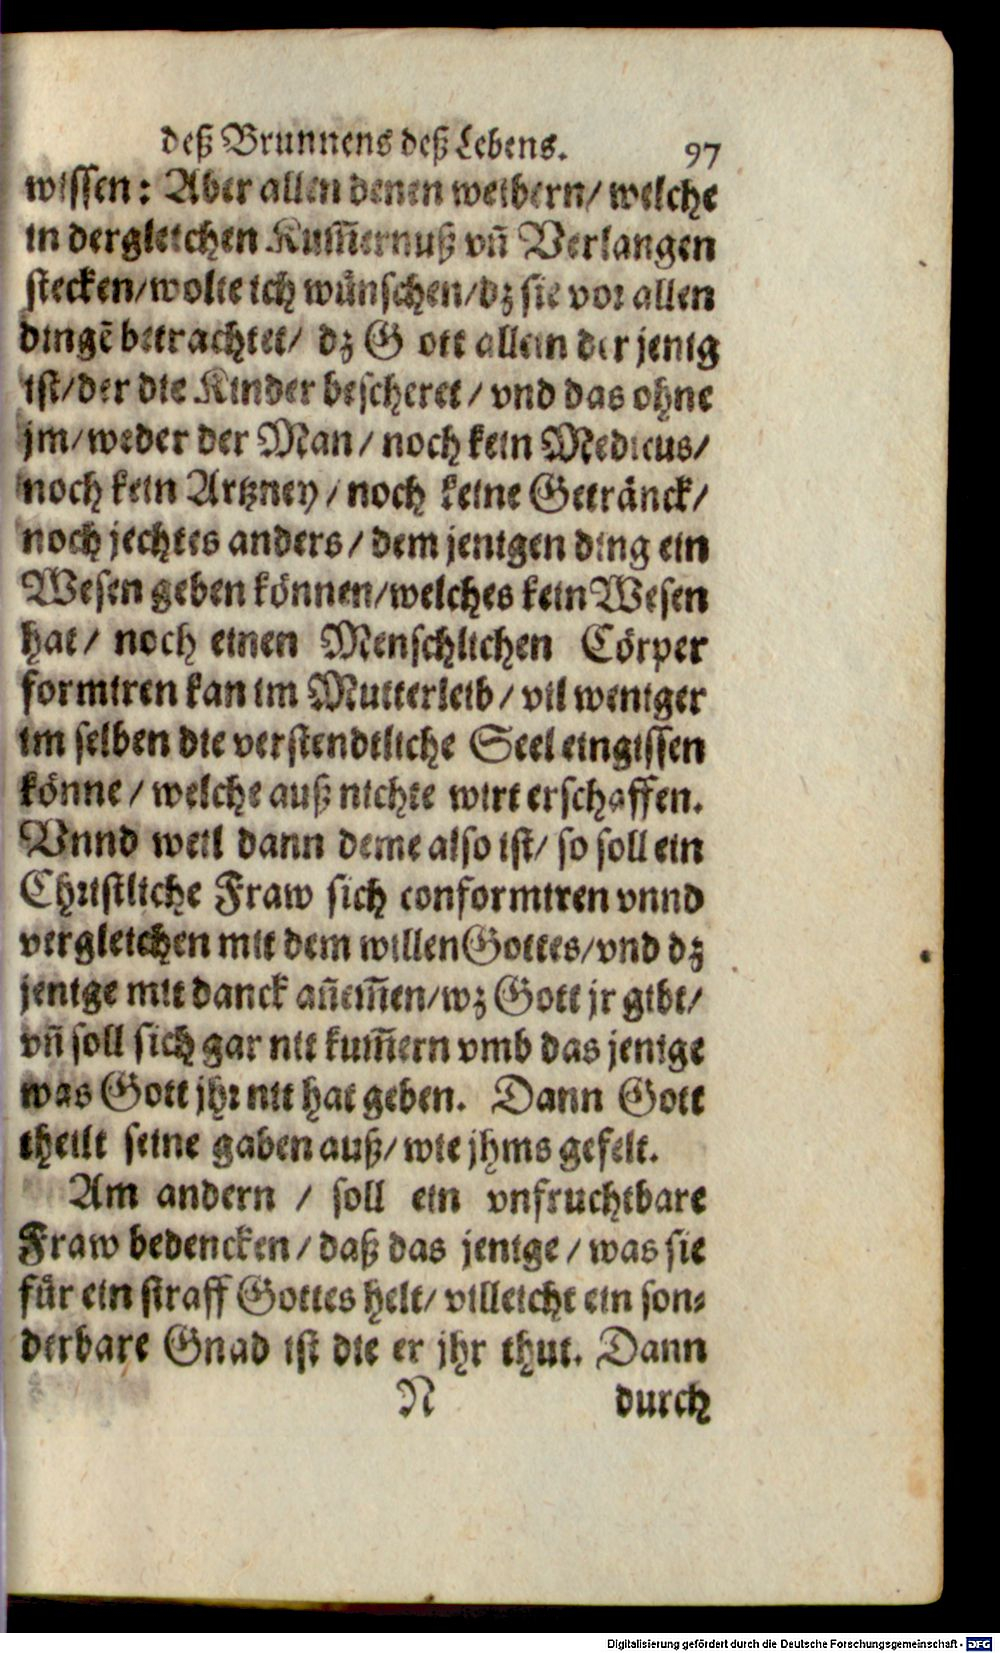 deß Brunnens deß Lebens. 97
wissen: Aber allen denen weibern/ welche
in dergleichen Kum̃ernuß vñ Verlangen
stecken/wolte ich wůnschen/dz sie vor allen
dingē betrachtet/ dz G ott allein der jenig
ist/der die Kinder bescheret/ vnd das ohne
jm/weder der Man/ noch kein Medicus/
noch kein Artzney/ noch keine Getränck/
noch jechtes anders/ dem jenigen ding ein
Wesen geben können/welches kein Wesen
hat/ noch einen Menschlichen Cörper
formiren kan im Mutterleib/ vil weniger
im selben die verstendtliche Seel eingissen
könne/ welche auß nichte wirt erschaffen.
Vnnd weil dann deme also ist/ so soll ein
Christliche Fraw sich conformiren vnnd
vergleichen mit dem willen Gottes/vnd dz
jenige mit danck añem̃en/wz Gott jr gibt/
vñ soll sich gar nit kum̃ern vmb das jenige
was Gott jhr nit hat geben. Dann Gott
theilt seine gaben auß/ wie jhms gefelt.
Am andern / soll ein vnfruchtbare
Fraw bedencken/ daß das jenige/ was sie
fůr ein straff Gottes helt/ villeicht ein son-
derbare Gnad ist die er jhr thut. Dann
N durch
Digitalisierung gefördert durch die Deutsche Forschungsgemeinschaft - DFG